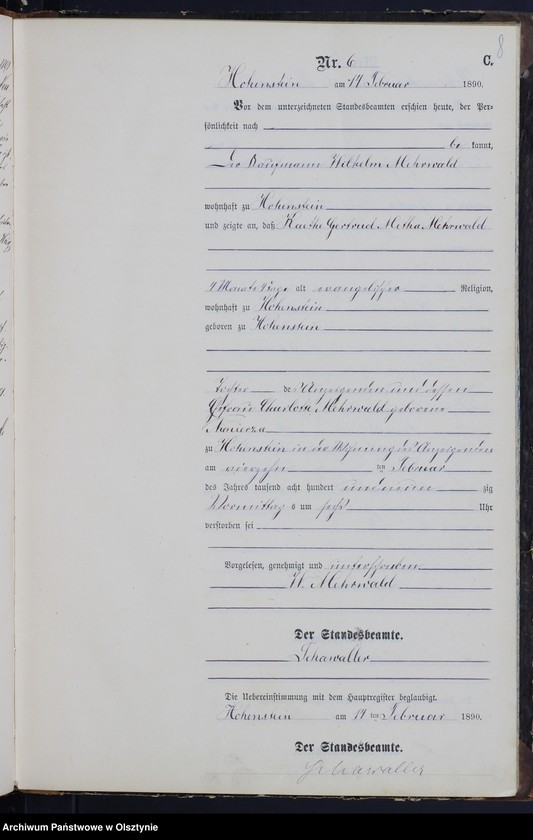 8
Nr. 6 C.
Hohenstein am 14 Februar 1890.
Vor dem unterzeichneten Standesbeamten erschien heute, der Per-
sönlichkeit nach
be kannt,
Der Kaufmann Wilhelm Mehrwald
wohnhaft zu Hohenstein
und zeigte an, daß Kaethe Gertrud Metha Mehrwald
Monate Tage alt evangelischer Religion,
wohnhaft zu Hohenstein
geboren zu Hohenstein
Tochter des Anzeigenden und dessen
Ehefrau Charlotte Mehrwald geborene
zu Hohenstein in der Wohnung des Anzeigenden
am vierzehn ten Februar
des Jahres tausend acht hundert und neun zig
Vormittag s um sechs Uhr
verstorben sei
Vorgelesen, genehmigt und unterschrieben
W. Mehrwald
Der Standesbeamte.
Schawaller
Die Uebereinstimmung mit dem Hauptregister beglaubigt.
Hohenstein am 14 ten Februar 1890.
Der Standesbeamte.
Schawaller
Archiwum Państwowe w Olsztynie